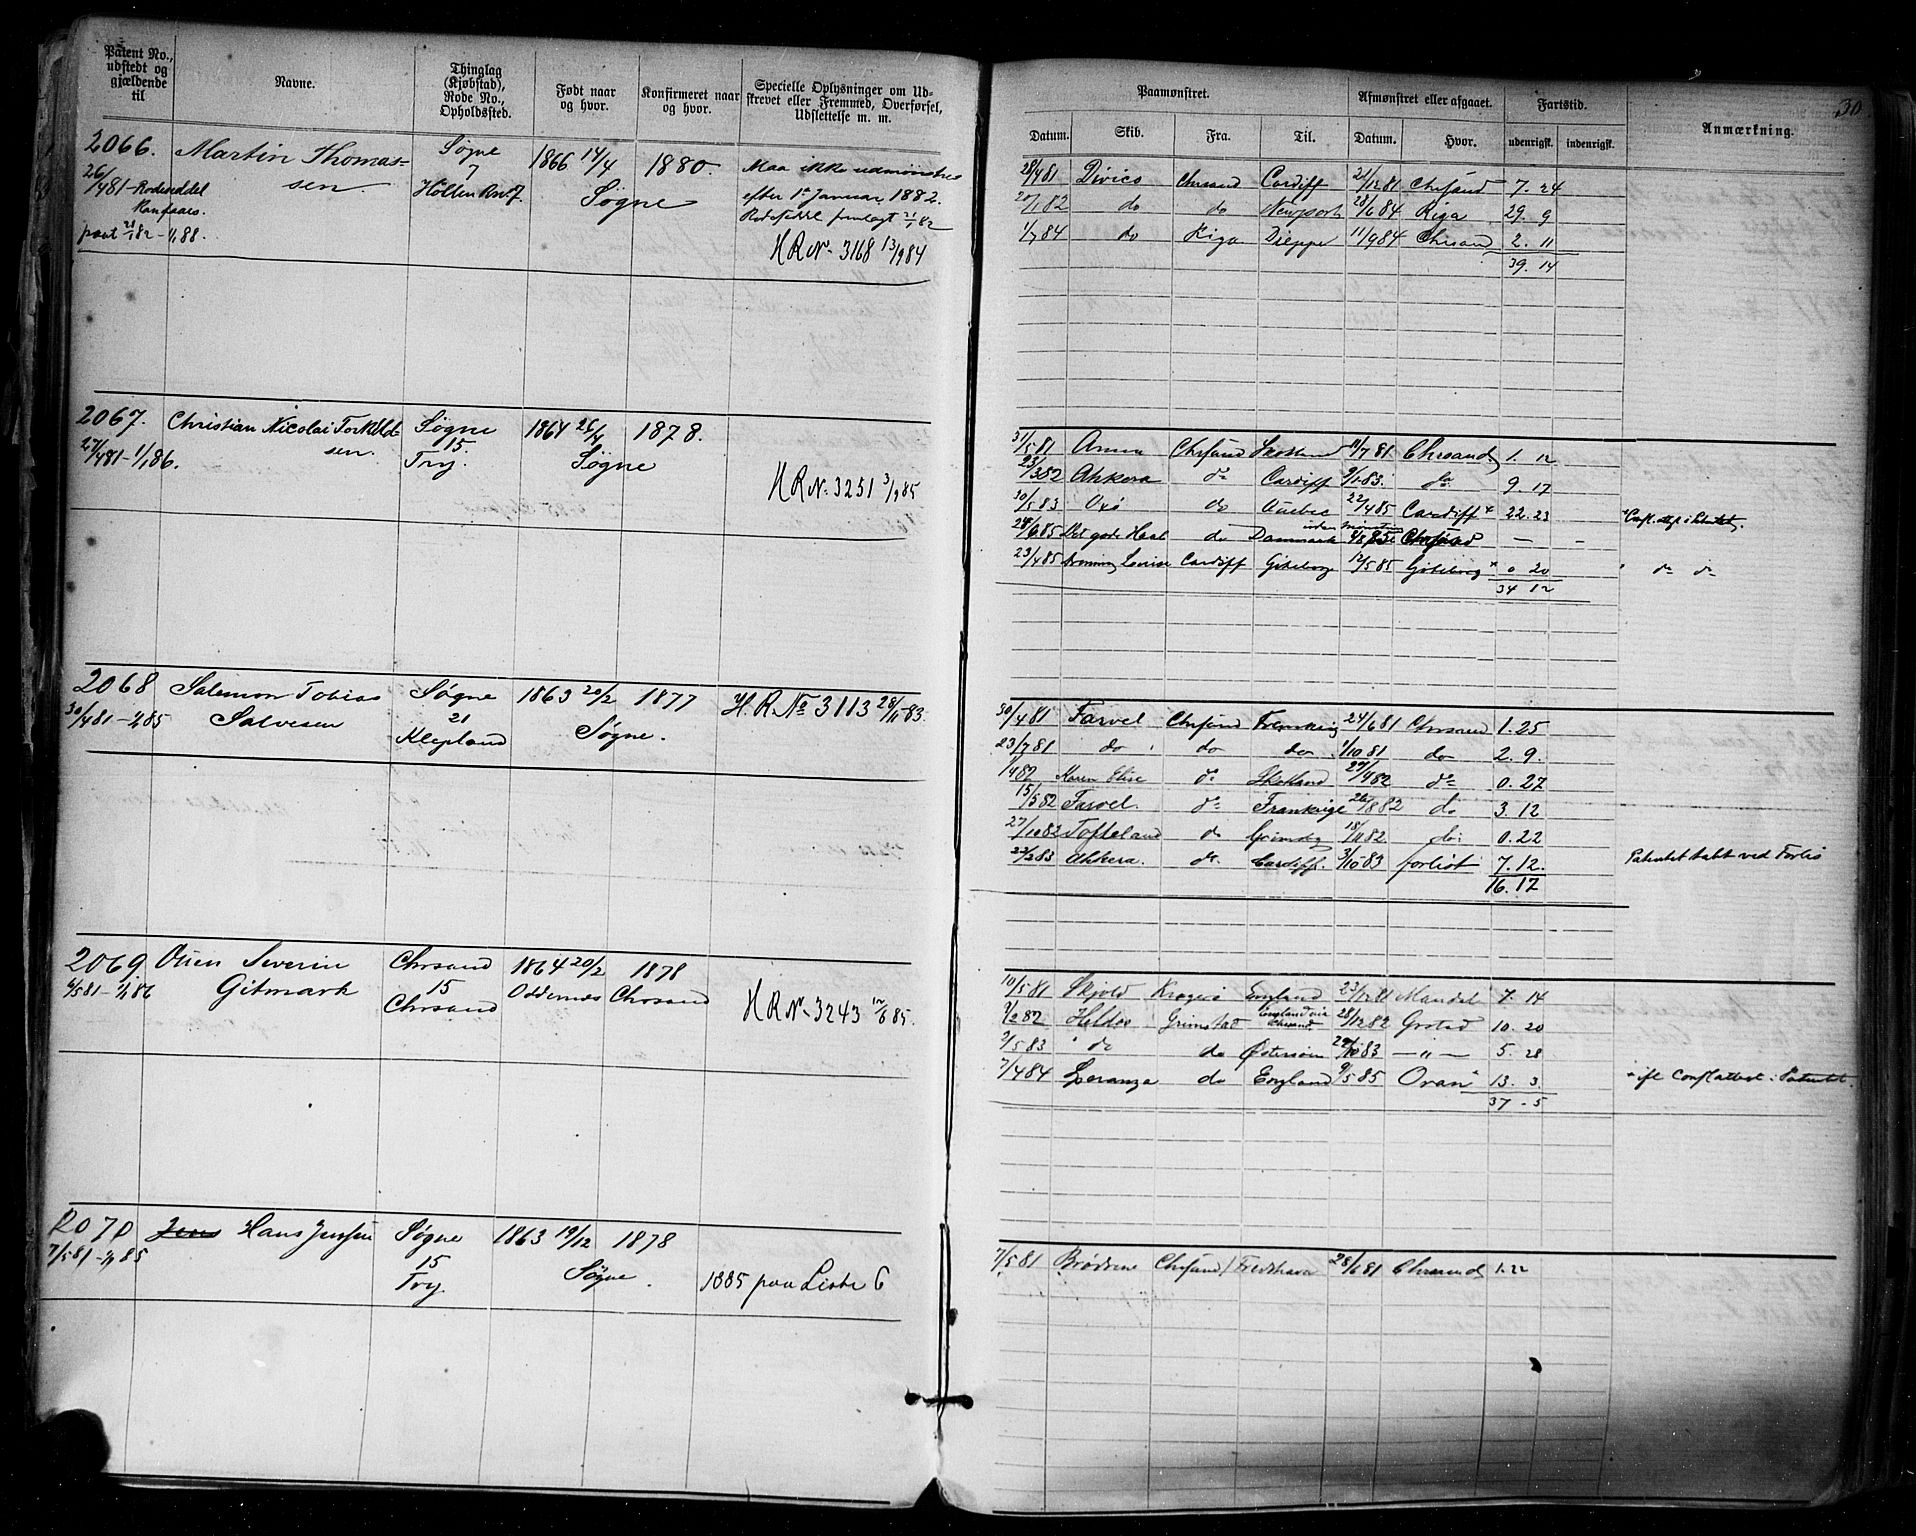 Patent No., udstedt og gjældende til
Navne.
Thinglag (Kjøbstad), Rode No., Opholdssted.
Født naar og hvor.
Konfirmeret naar og hvor.
Specielle Oplysninger om Udskrevet eller Fremmed, Overførsel, Udslettelse m. m.
2066. Martin Thomas- Søgne 1866 14/4 1880. Maa ikke udmønstres
26/4 81 - Rodeseddel sen 7 Søgne efter 1ste Januar 1882.
Høllen
21/1 82 - 1/1 88. H R No 3168 13/9 84
2067. Christian Nicolai Torkild- Søgne 1864 26/4 1878.
27/4 81 - 1/1 86. sen. 15. Søgne
Try. H R No 3251 3/9 85
2068 Salemon Tobias Søgne 1863 20/2 1877 H. R. No 3113 28/11 83.
30/4 81 - 1/1 85 Salvesen 21 Søgne.
Klepland
2069 Severin Chrsand 1864 20/2 1878
6/5 81 - 1/1 86 Gitmark 15 Oddernes Chrsand
Chrsand H R No 3243 12/6 85.
2070 Jens Hans Jensen Søgne 1863 19/12 1878
7/5 81 - 1/1 85 15 Søgne.
Try. 1885 paa Liste 6
30
Paamønstret.
Afmønstret eller afgaaet.
Fartstid.
Anmærkning.
Datum. Skib. Fra. Til. Datum. Hvor. udenrigsk. indenrigsk.
28/4 81 Divico Chrsand Cardiff 21/12 81 Chrsand 7. 24
20/1 82 do do Newport 28/6 84 Riga 29. 9
1/7 84 do Riga Dieppe 11/9 84 Chrsand 2. 11
39. 14
31/5 81 Anna Chrsand 11/7 81 Chrsand 1. 12
23/3 82 Ahkera do Cardiff 9/1 83. do 9. 17
30/5 83 Oxø do Quebec 22/4 85 Cardiff * 22. 23
24/6 85 Det gode Haab do Danmark Chrsand — -
23/4 85 Dronning Louise Cardiff Göteborg 12/5 85 Göteborg * 0 20 do do
34 12
30/4 81 Farvel Chrsand Frankrig 24/6 81 Chrsand 1. 25
23/7 81 do do do 1/10 81 do 2. 9.
1/4 82 Karen Elise do Skotland 27/4 82 do 0. 27
15/5 82 Farvel. do Frankrige 26/8 82 do 3. 12
27/10 82 Tofteland do Grimsby 18/11 82 do 0. 22
22/2 83 Ahkera. do Cardiff. 3/10 83 forlist 7. 12. Patentet tabt ved Forlis
16. 17
10/5 81 Skjold Kragerø England 23/12 81 Mandal 7. 14
9/2 82 Heldos Grimstad England via Chrsand 28/12 82 Grstad 10. 20
9/5 83 do do Østersøen 29/10 83 — " — 5. 28
7/4 84 Speranza do England 9/5 85 Oran 13. 3. * ifl Confl attest i Patentet.
37 - 5
7/5 81 Brødrene Chrsand Fredrhavn 28/6 81 Chrsand 1. 22